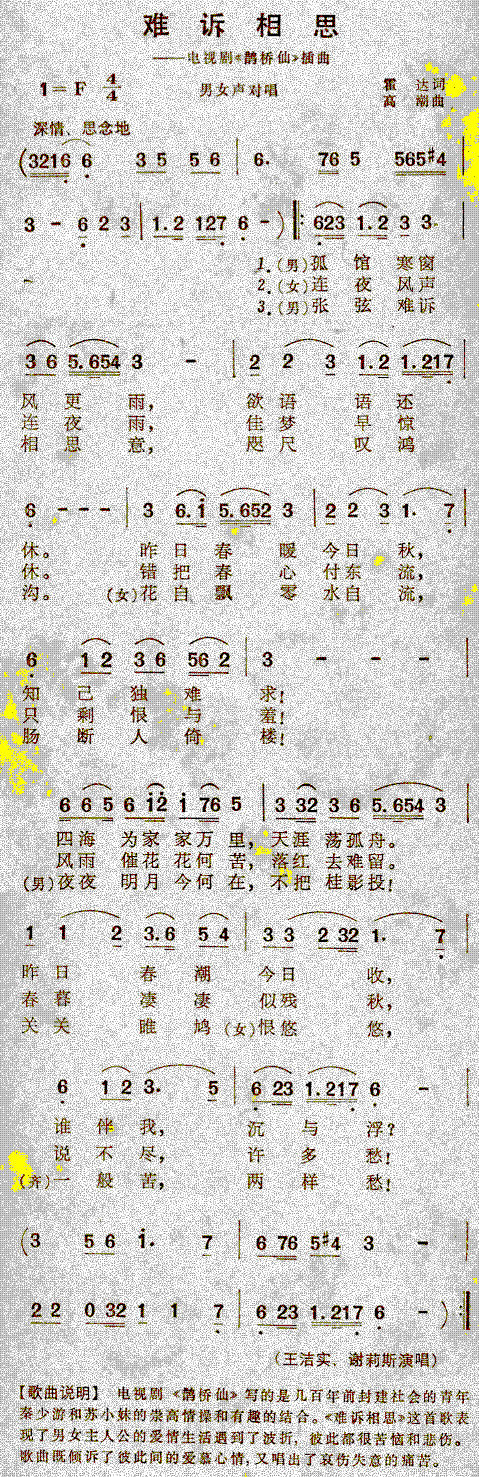 难诉相思
——电视剧《鹊桥仙》插曲
1=F 4/4 男女声对唱 霍达词
高潮曲
深情、思念地
(3216 6 3 5 5 6 | 6. 76 5 565#4 |
3 - 6 2 3 | 1.2 127 6 - ) ‖: 623 1.2 3 3. |
1.(男)孤馆寒窗
2.(女)连夜风声
3.(男)张弦难诉
3 6 5.654 3 - | 2 2 3 1.2 1.217 |
风更雨,欲语语还
连夜雨,佳梦早惊
相思意,咫尺叹鸿
6 - - - | 3 6.i 5.652 3 | 2 2 3 1. 7 |
休。昨日春暖今日秋,
休。错把春心付东流,
沟。(女)花自飘零水自流,
6 1 2 3 6 56 2 | 3 - - - |
知己独难求!
只剩恨与羞!
肠断人倚楼!
6 6 5 6 i2 i 76 5 | 3 32 3 6 5.654 3 |
四海为家家万里,天涯荡孤舟。
风雨催花花何苦,落红去难留。
(男)夜夜明月今何在,不把桂影投!
1 1 2 3.6 5 4 | 3 3 2 32 1. 7 |
昨日春潮今日收,
春暮凄凄似残秋,
关关雎鸠(女)恨悠悠,
6 1 2 3. 5 | 6 23 1.217 6 - |
谁伴我,沉与浮?
说不尽,许多愁!
(齐)一般苦,两样愁!
(3 5 6 i. 7 | 6 76 5#4 3 - |
2 2 0 32 1 1 7 | 6 23 1.217 6 - ) :‖
(王洁实、谢莉斯演唱)
【歌曲说明】 电视剧《鹊桥仙》写的是几百年前封建社会的青年
秦少游和苏小妹的崇高情操和有趣的结合。《难诉相思》这首歌表
现了男女主人公的爱情生活遇到了波折,彼此都很苦恼和悲伤。
歌曲既倾诉了彼此间的爱慕心情,又唱出了哀伤失意的痛苦。